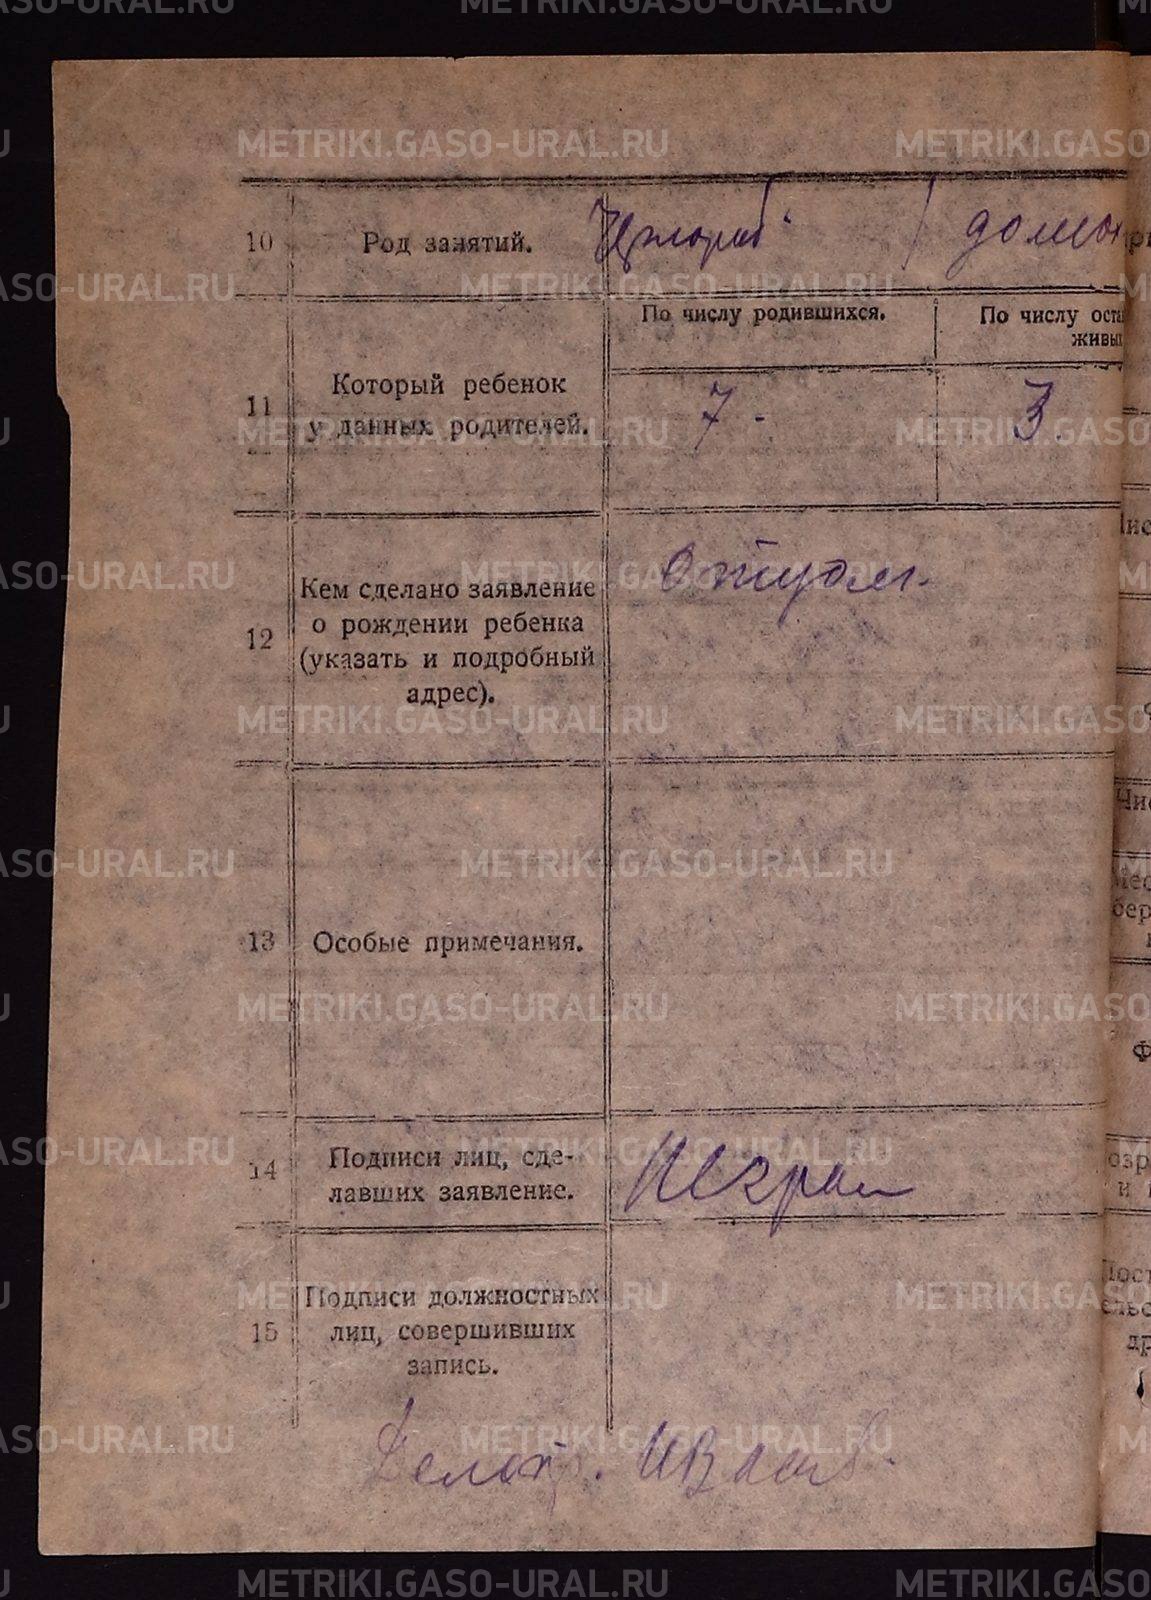 10 Род занятий.
По числу родившихся.
По числу оста
живы
11 Который ребенок
у данных родителей.
7 -
3.
12 Кем сделано заявление
о рождении ребенка
(указать и подробный
адрес).
Отцом.
13 Особые примечания.
14 Подписи лиц, сде-
лавших заявление.
15 Подписи должностных
лиц, совершивших
запись.
Делопр.
METRIKI.GASO-URAL.RU